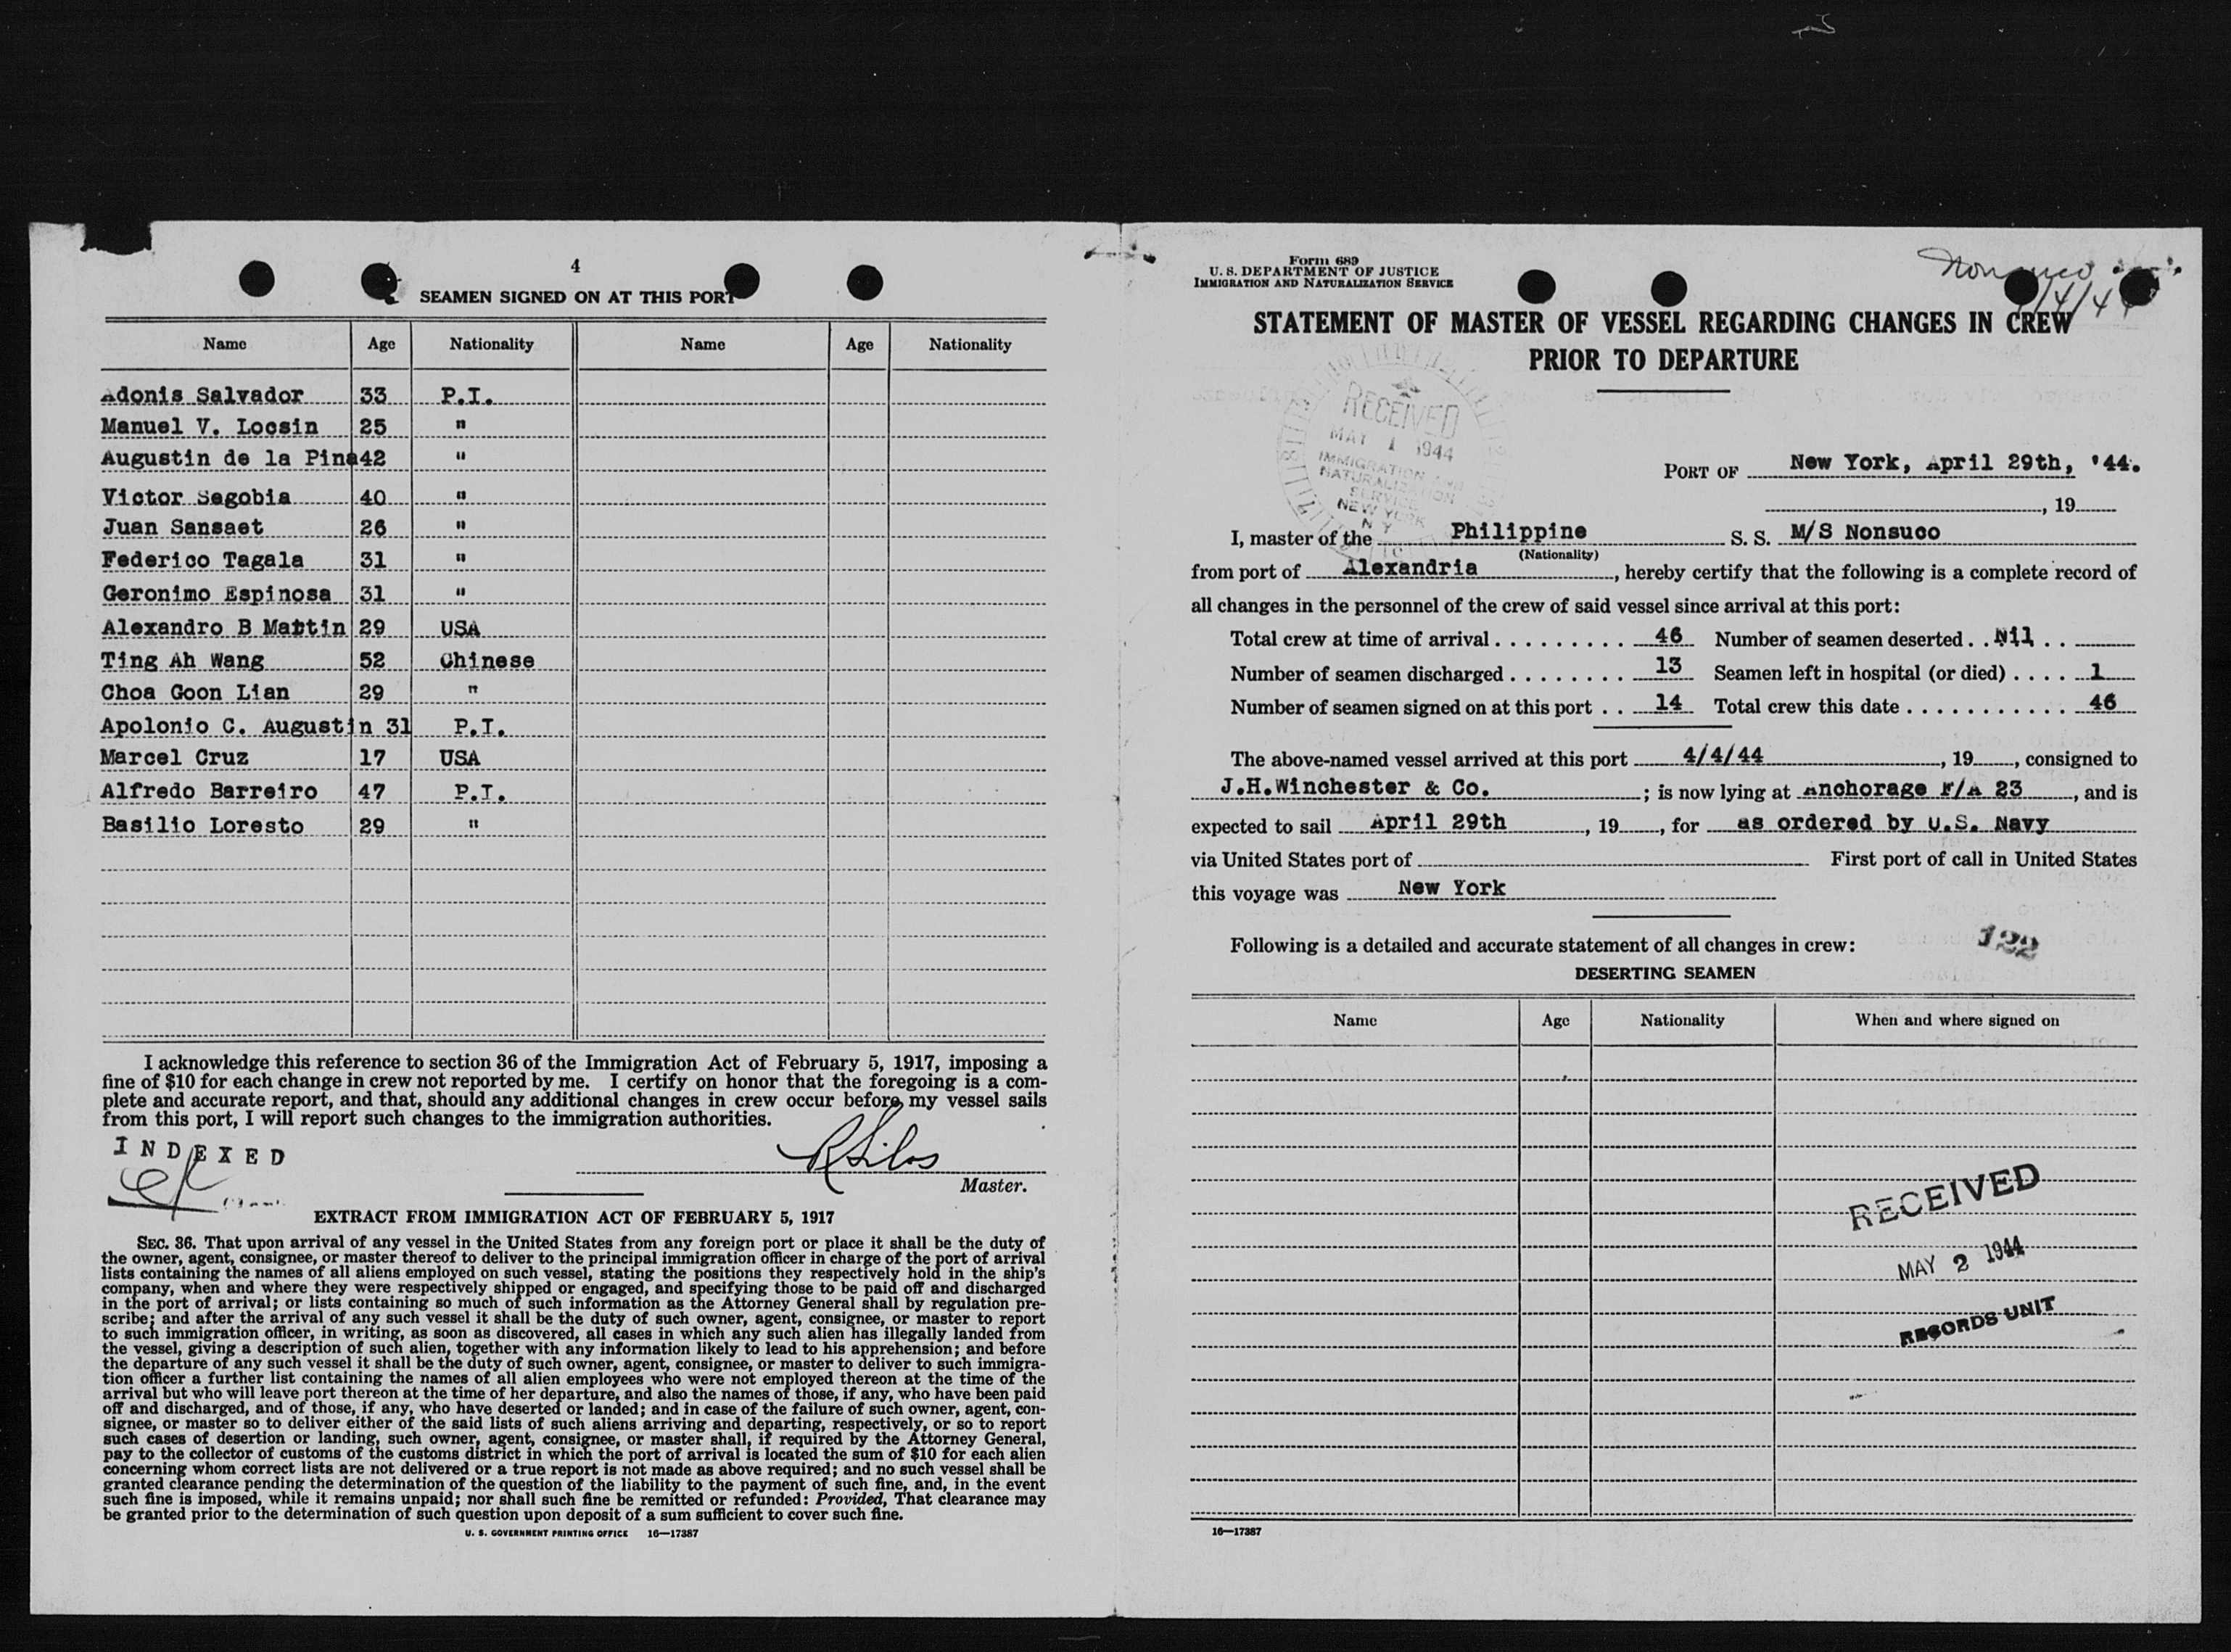 4
SEAMEN SIGNED ON AT THIS PORT
Name Age Nationality Name Age Nationality
Adonis Salvador 33 P.I.
Manuel V. Locsin 25 "
Augustin de la Pina 42 "
Victor Segobia 40 "
Juan Sansaet 26 "
Federico Tagala 31 "
Geronimo Espinosa 31 "
Alexandro B Mattin 29 USA
Ting Ah Wang 52 Chinese
Choa Goon Lian 29 "
Apolonio C. Augustin 31 P.I.
Marcel Cruz 17 USA
Alfredo Barreiro 47 P.I.
Basilio Loresto 29 "
I acknowledge this reference to section 36 of the Immigration Act of February 5, 1917, imposing a
fine of $10 for each change in crew not reported by me. I certify on honor that the foregoing is a com-
plete and accurate report, and that, should any additional changes in crew occur before my vessel sails
from this port, I will report such changes to the immigration authorities.
INDEXED
R Silos
Master.
EXTRACT FROM IMMIGRATION ACT OF FEBRUARY 5, 1917
SEC. 36. That upon arrival of any vessel in the United States from any foreign port or place it shall be the duty of
the owner, agent, consignee, or master thereof to deliver to the principal immigration officer in charge of the port of arrival
lists containing the names of all aliens employed on such vessel, stating the positions they respectively hold in the ship's
company, when and where they were respectively shipped or engaged, and specifying those to be paid off and discharged
in the port of arrival; or lists containing so much of such information as the Attorney General shall by regulation pre-
scribe; and after the arrival of any such vessel it shall be the duty of such owner, agent, consignee, or master to report
to such immigration officer, in writing, as soon as discovered, all cases in which any such alien has illegally landed from
the vessel, giving a description of such alien, together with any information likely to lead to his apprehension; and before
the departure of any such vessel it shall be the duty of such owner, agent, consignee, or master to deliver to such immigra-
tion officer a further list containing the names of all alien employees who were not employed thereon at the time of the
arrival but who will leave port thereon at the time of her departure, and also the names of those, if any, who have been paid
off and discharged, and of those, if any, who have deserted or landed; and in case of the failure of such owner, agent, con-
signee, or master so to deliver either of the said lists of such aliens arriving and departing, respectively, or so to report
such cases of desertion or landing, such owner, agent, consignee, or master shall, if required by the Attorney General,
pay to the collector of customs of the customs district in which the port of arrival is located the sum of $10 for each alien
concerning whom correct lists are not delivered or a true report is not made as above required; and no such vessel shall be
granted clearance pending the determination of the question of the liability to the payment of such fine, and, in the event
such fine is imposed, while it remains unpaid; nor shall such fine be remitted or refunded: Provided, That clearance may
be granted prior to the determination of such question upon deposit of a sum sufficient to cover such fine.
U. S. GOVERNMENT PRINTING OFFICE 16—17387
Form 689
U. S. DEPARTMENT OF JUSTICE
IMMIGRATION AND NATURALIZATION SERVICE
STATEMENT OF MASTER OF VESSEL REGARDING CHANGES IN CREW
PRIOR TO DEPARTURE
RECEIVED
MAY 1 1944
IMMIGRATION AND
NATURALIZATION
SERVICE
NEW YORK
N Y
PORT OF New York, April 29th, '44.
, 19
I, master of the Philippine S. S. M/S Nonsuco
(Nationality)
from port of Alexandria, hereby certify that the following is a complete record of
all changes in the personnel of the crew of said vessel since arrival at this port:
Total crew at time of arrival . . . . . . . . . 46 Number of seamen deserted . . Nil . .
Number of seamen discharged . . . . . . . . 13 Seamen left in hospital (or died) . . . . 1
Number of seamen signed on at this port . . 14 Total crew this date . . . . . . . . . . . 46
The above-named vessel arrived at this port 4/4/44, 19, consigned to
J.H.Winchester & Co.; is now lying at Anchorage F/A 23, and is
expected to sail April 29th, 19, for as ordered by U.S. Navy
via United States port of First port of call in United States
this voyage was New York
Following is a detailed and accurate statement of all changes in crew:
122
DESERTING SEAMEN
Name Age Nationality When and where signed on
RECEIVED
MAY 2 1944
RECORDS UNIT
16—17387